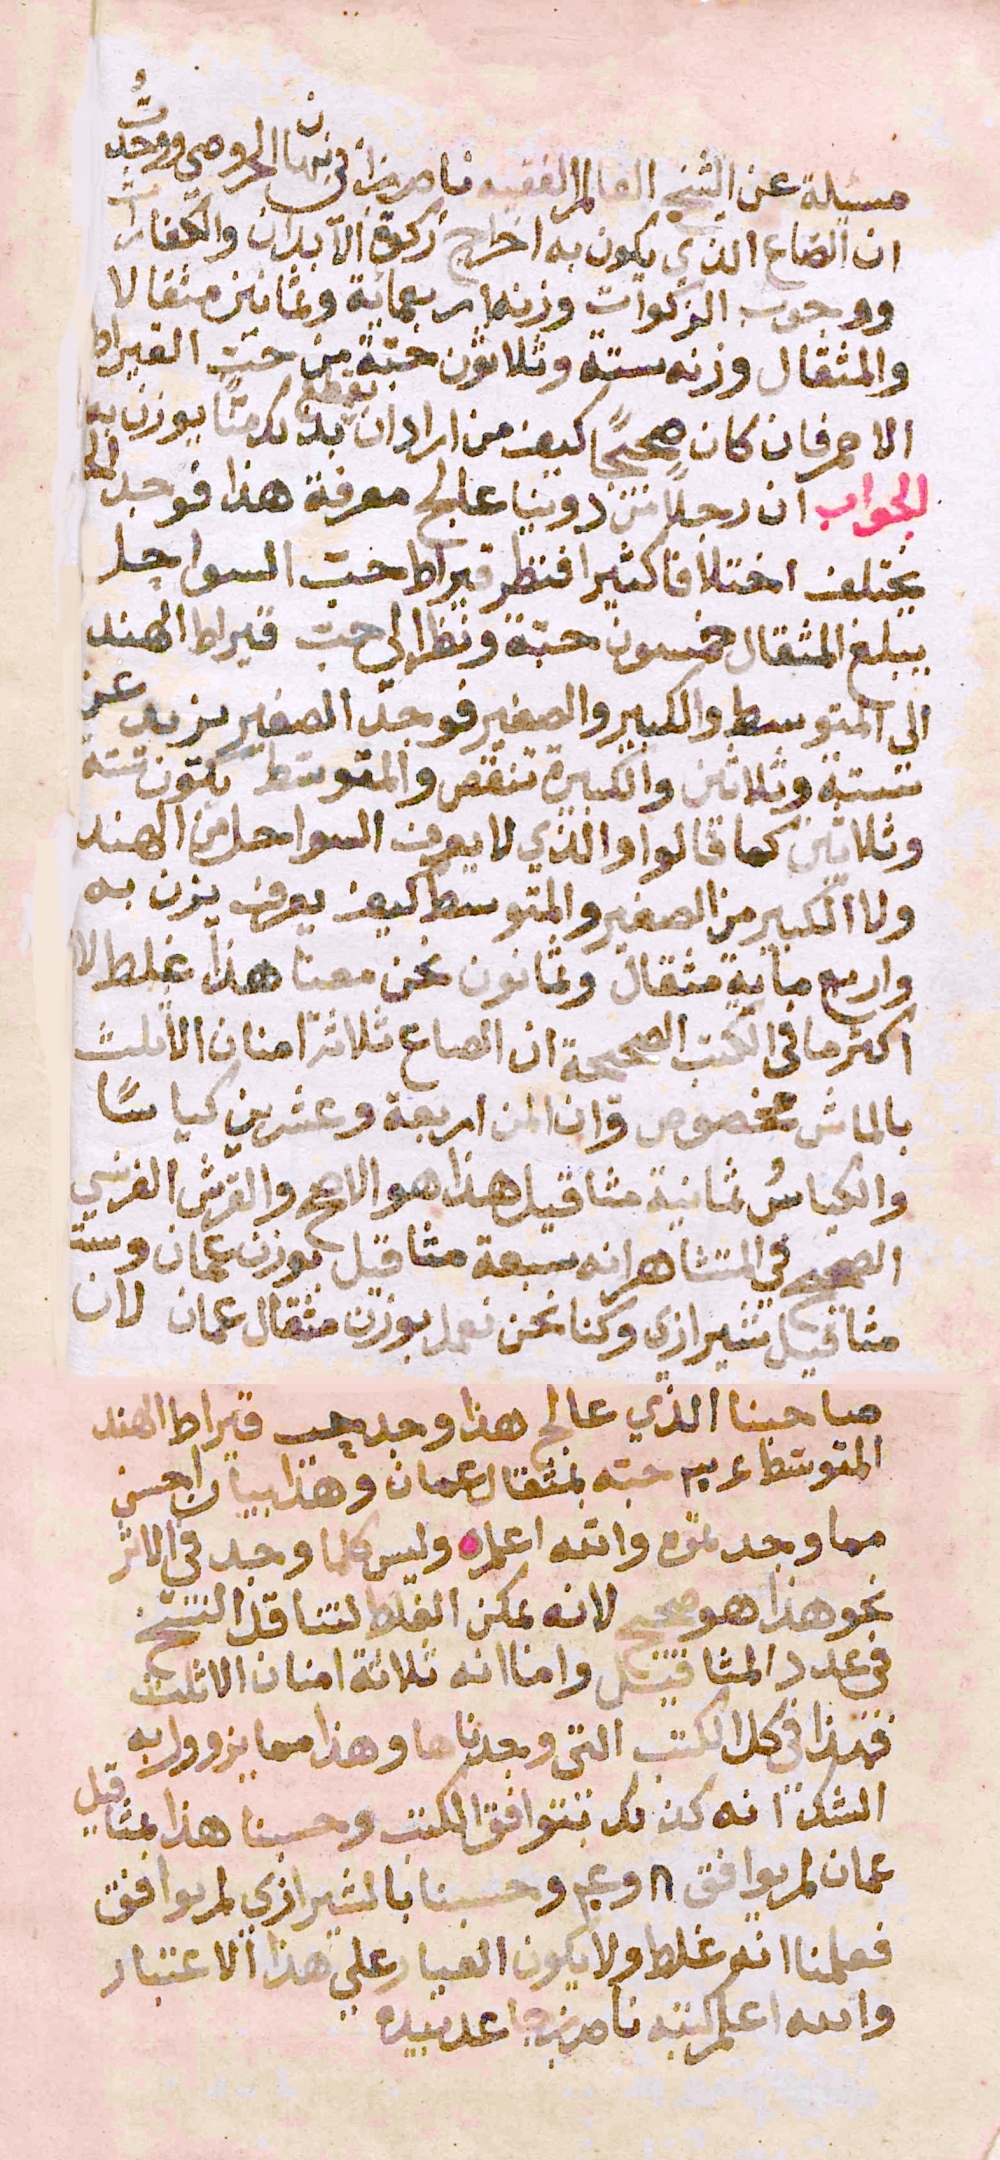 مسئلة عن الشيخ العالم الفقيه ناصر بن نبهان الخروصي ووجدت
ان الصاع الذي يكون به اخراج زكوة الأبدان والكفارات
ووجوب الزكوات وزنه اربعمائة وثمانين مثقالا
والمثقال وزنه ستة وثلاثون حبة من حب القيراط
الاحمر فان كان صحيحًا كيف من اراد ان يقطع بذلك منًّا يوزن به
الجواب ان رجلاً من ذوينا عالج معرفة هذا فوجد
يختلف اختلافا كثيرا فنظر قيراط حب السواحل
يبلغ المثقال خمسون حبة ونظر الي حب قيراط الهند
الى المتوسط والكبير والصغير فوجد الصغير يزيد عن
ستة وثلاثين والكبيرة تنقص والمتوسط يكون ستة
وثلاثين كما قالوا والذي لا يعرف السواحل من الهند
ولا الكبير من الصغير والمتوسط كيف يعرف يزن به
واربع ماية مثقال وثمانون نحن معنا هذا غلط لان
اكثر ما في الكتب الصحيحة ان الصاع ثلاثة امنان الا ثلث
بالماش مخصوص وان المن اربعة وعشرين كياسًا
والكياسُ ثمانية مثاقيل هذا هو الاصح والقرش الفرنسي
الصحيح في المتشاهر انه سبعة مثاقيل بوزن عمان وستة
مثاقيل شيرازي وكنا نحن نعمل بوزن مثقال عمان لان
صاحبنا الذي عالج هذا وجد حب قيراط الهند
المتوسط حبه بمثقال عمان وهذا بيان احسن
مما وجد غيره والله اعلم وليس كلما وجد في الاثر
نحو هذا هو صحيح لانه يمكن الغلط لتناقل النسخ
في عدد المثاقيل واما انه ثلاثة امنان الا ثلث
فهذا في كل الكتب التي وجدناها وهذا مما يزول به
الشك انه كذلك بتوافق الكتب وحسبنا هذا بمثاقيل
عمان لم يوافق وحسبنا بالشيرازي لم يوافق
فعلمنا انه غلط ولا يكون العيار علي هذا الاعتبار
والله اعلم كتبه ناصر بيده